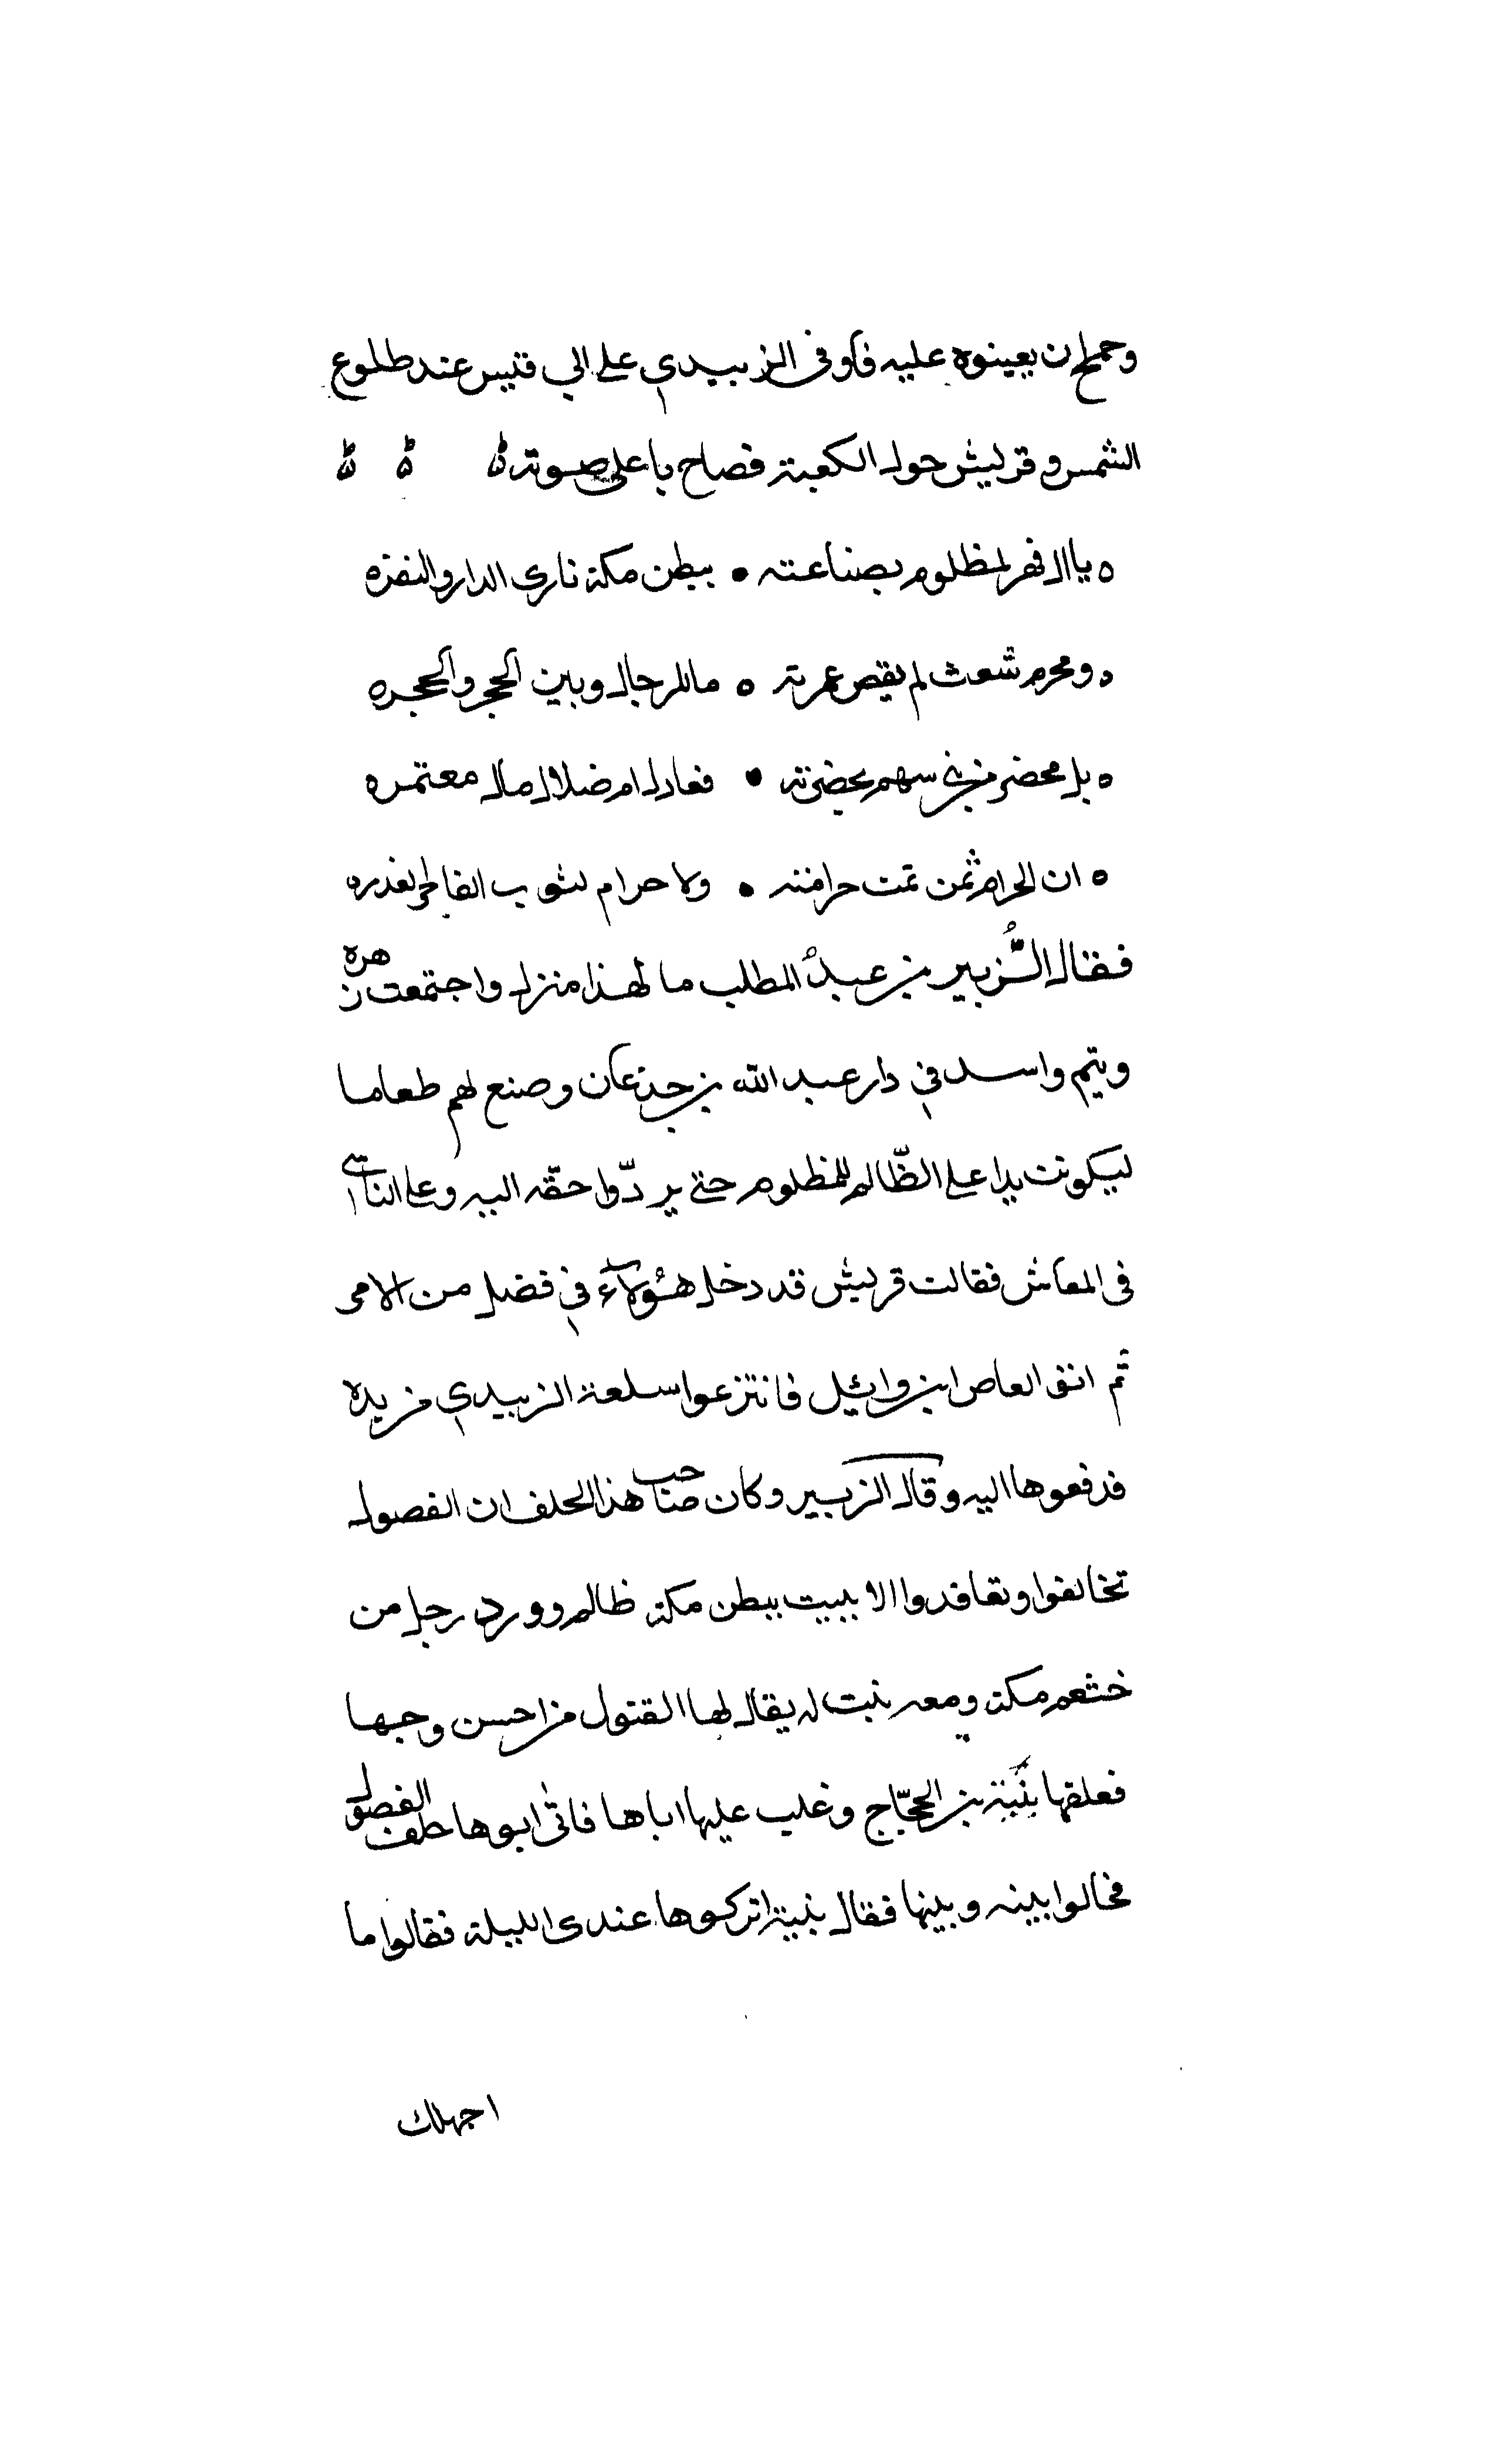 وجمح ان يعينوه عليه فأوفى الزبيدي على ابي قبيس عند طلوع
الشمس وقريش حول الكعبة فصاح باعلى صوته
يا ال فهر لمظلوم بضاعته • ببطن مكة نارى الدار والنفر
ومحرم شعث لم يقض عمرته • ما للرجال وبين الحجر والحجر
بل محضر من بني سهم بحضرته • فعادل ام ضلال مال معتمر
ان الحرام ثمن تمت حرامته • ولا حرام لثوب الفاجر الغدر
فقال الزُّبير بن عبد المطلب ما لهذا منزل واجتمعت زهرة
وتيم واسد في دار عبد الله بن جدعان وصنع لهم طعاما
ليكونن يدا على الظّالم للمظلوم حتى يردّوا حقّه اليه وعلى التاسي
في المعاش فقالت قريش قد دخل هؤلاء في فضل من الامر
ثم اتو العاص ابن وائل فانتزعوا سلعة الزبيدي من يده
فدفعوها اليه وقال الزبير وكان صاحب هذا الحلف ان الفضول
تخالفوا وتعاقدوا الا يبيت ببطن مكة ظالم وورد رجل من
خثعم مكة ومعه بنت له يقال لها القتول من احسن وجها
فعلقها نبية بن الحجّاج وغلب عليها اباها فاتى ابوها حلف الفضول
فحالوا بينه وبينها فقال نبية اتركوها عندى الليلة فقالوا ما
اجهلك